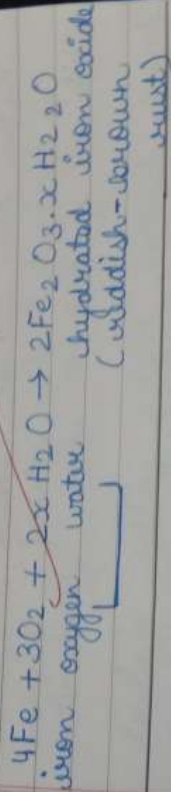 4Fe + 3O2 + 2x H2O → 2Fe2O3.xH2O
iron oxygen water hydrated iron oxide
(reddish-brown
rust)